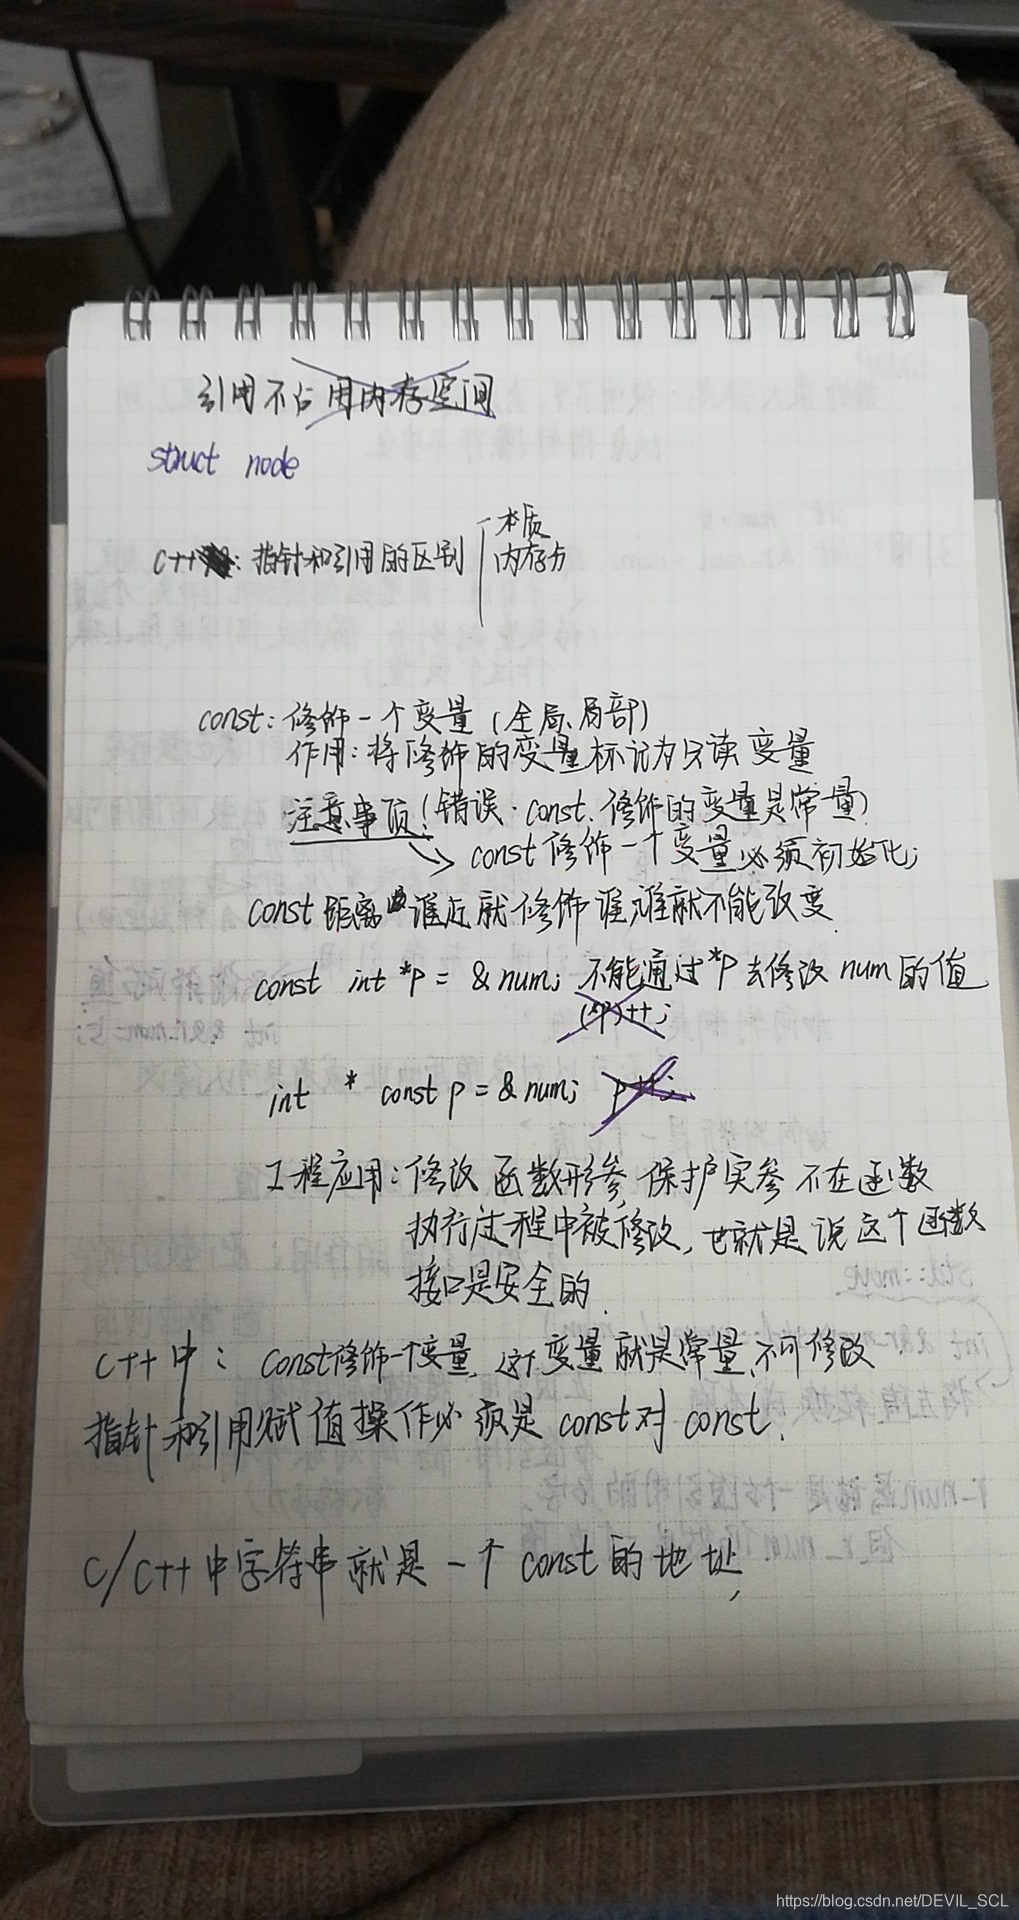 引用不占用内存空间
struct node
C++: 指针和引用的区别
本质
内存方
const: 修饰一个变量 (全局、局部)
作用: 将修饰的变量标记为只读变量
注意事项! 错误: const 修饰的变量是常量?
const 修饰一个变量必须初始化;
const 距离谁近就修饰谁, 谁就不能改变.
const int *p = &num; 不能通过*p去修改num的值
(*p)++;
int * const p = &num; p++;
工程应用: 修改函数形参, 保护实参不在函数
执行过程中被修改, 也就是说这个函数
接口是安全的.
C++中: const修饰一个变量, 这个变量就是常量, 不可修改
指针和引用赋值操作必须是const对const.
C/C++中字符串就是一个const的地址,
https://blog.csdn.net/DEVIL_SCL